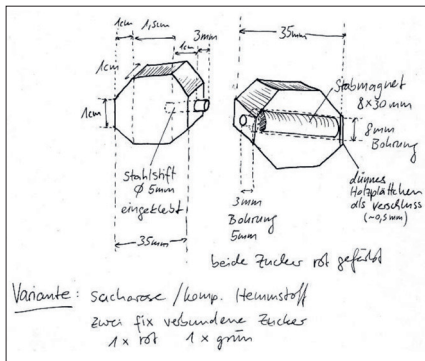 1cm
1,5cm
1cm
3mm
1cm
1cm
Stahlstift
Ø 5mm
eingeklebt
35mm
35mm
Stabmagnet
8 x 30mm
8mm
Bohrung
3mm
Bohrung
5mm
dünnes
Holzplättchen
als Verschluss
(~0,5mm)
beide Zucker rot gefärbt
Variante: Sacharose / komp. Hemmstoff
zwei fix verbundene Zucker
1 x rot 1 x grün